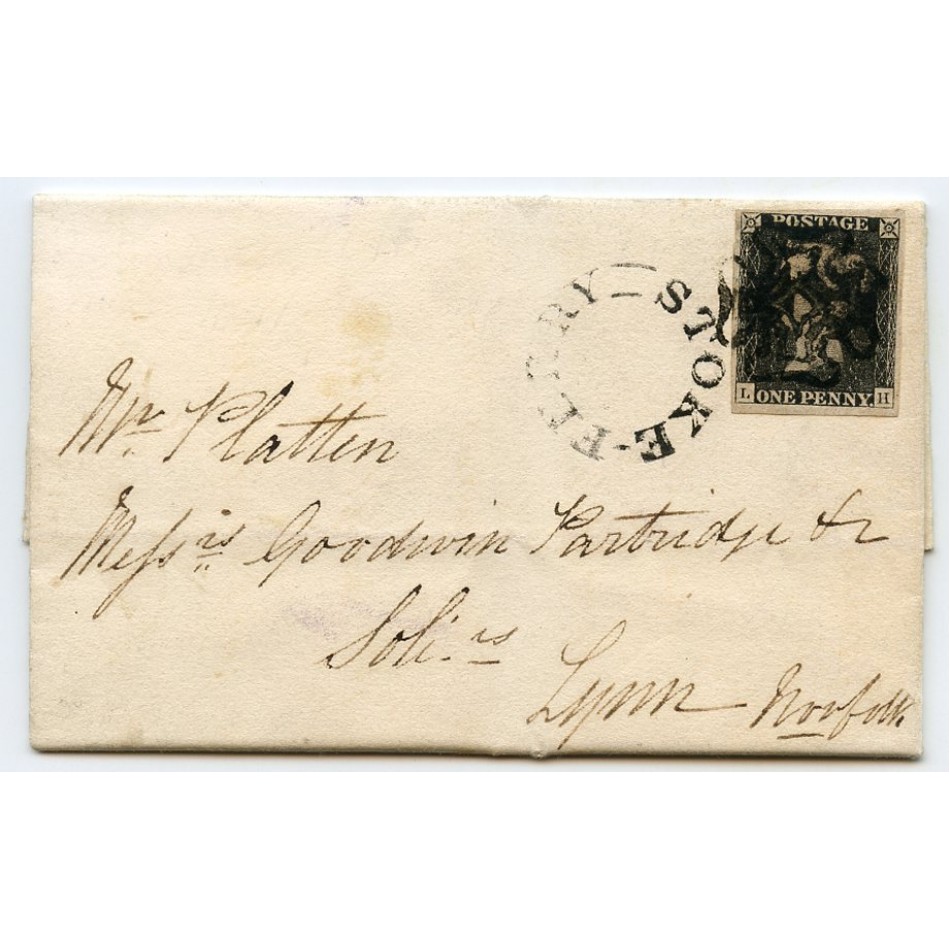 POSTAGE
L ONE PENNY. H
STOKE-FERRY
Mr. Platten
Messrs Goodwin Partridge & Co
Solirs
Lynn Norfolk